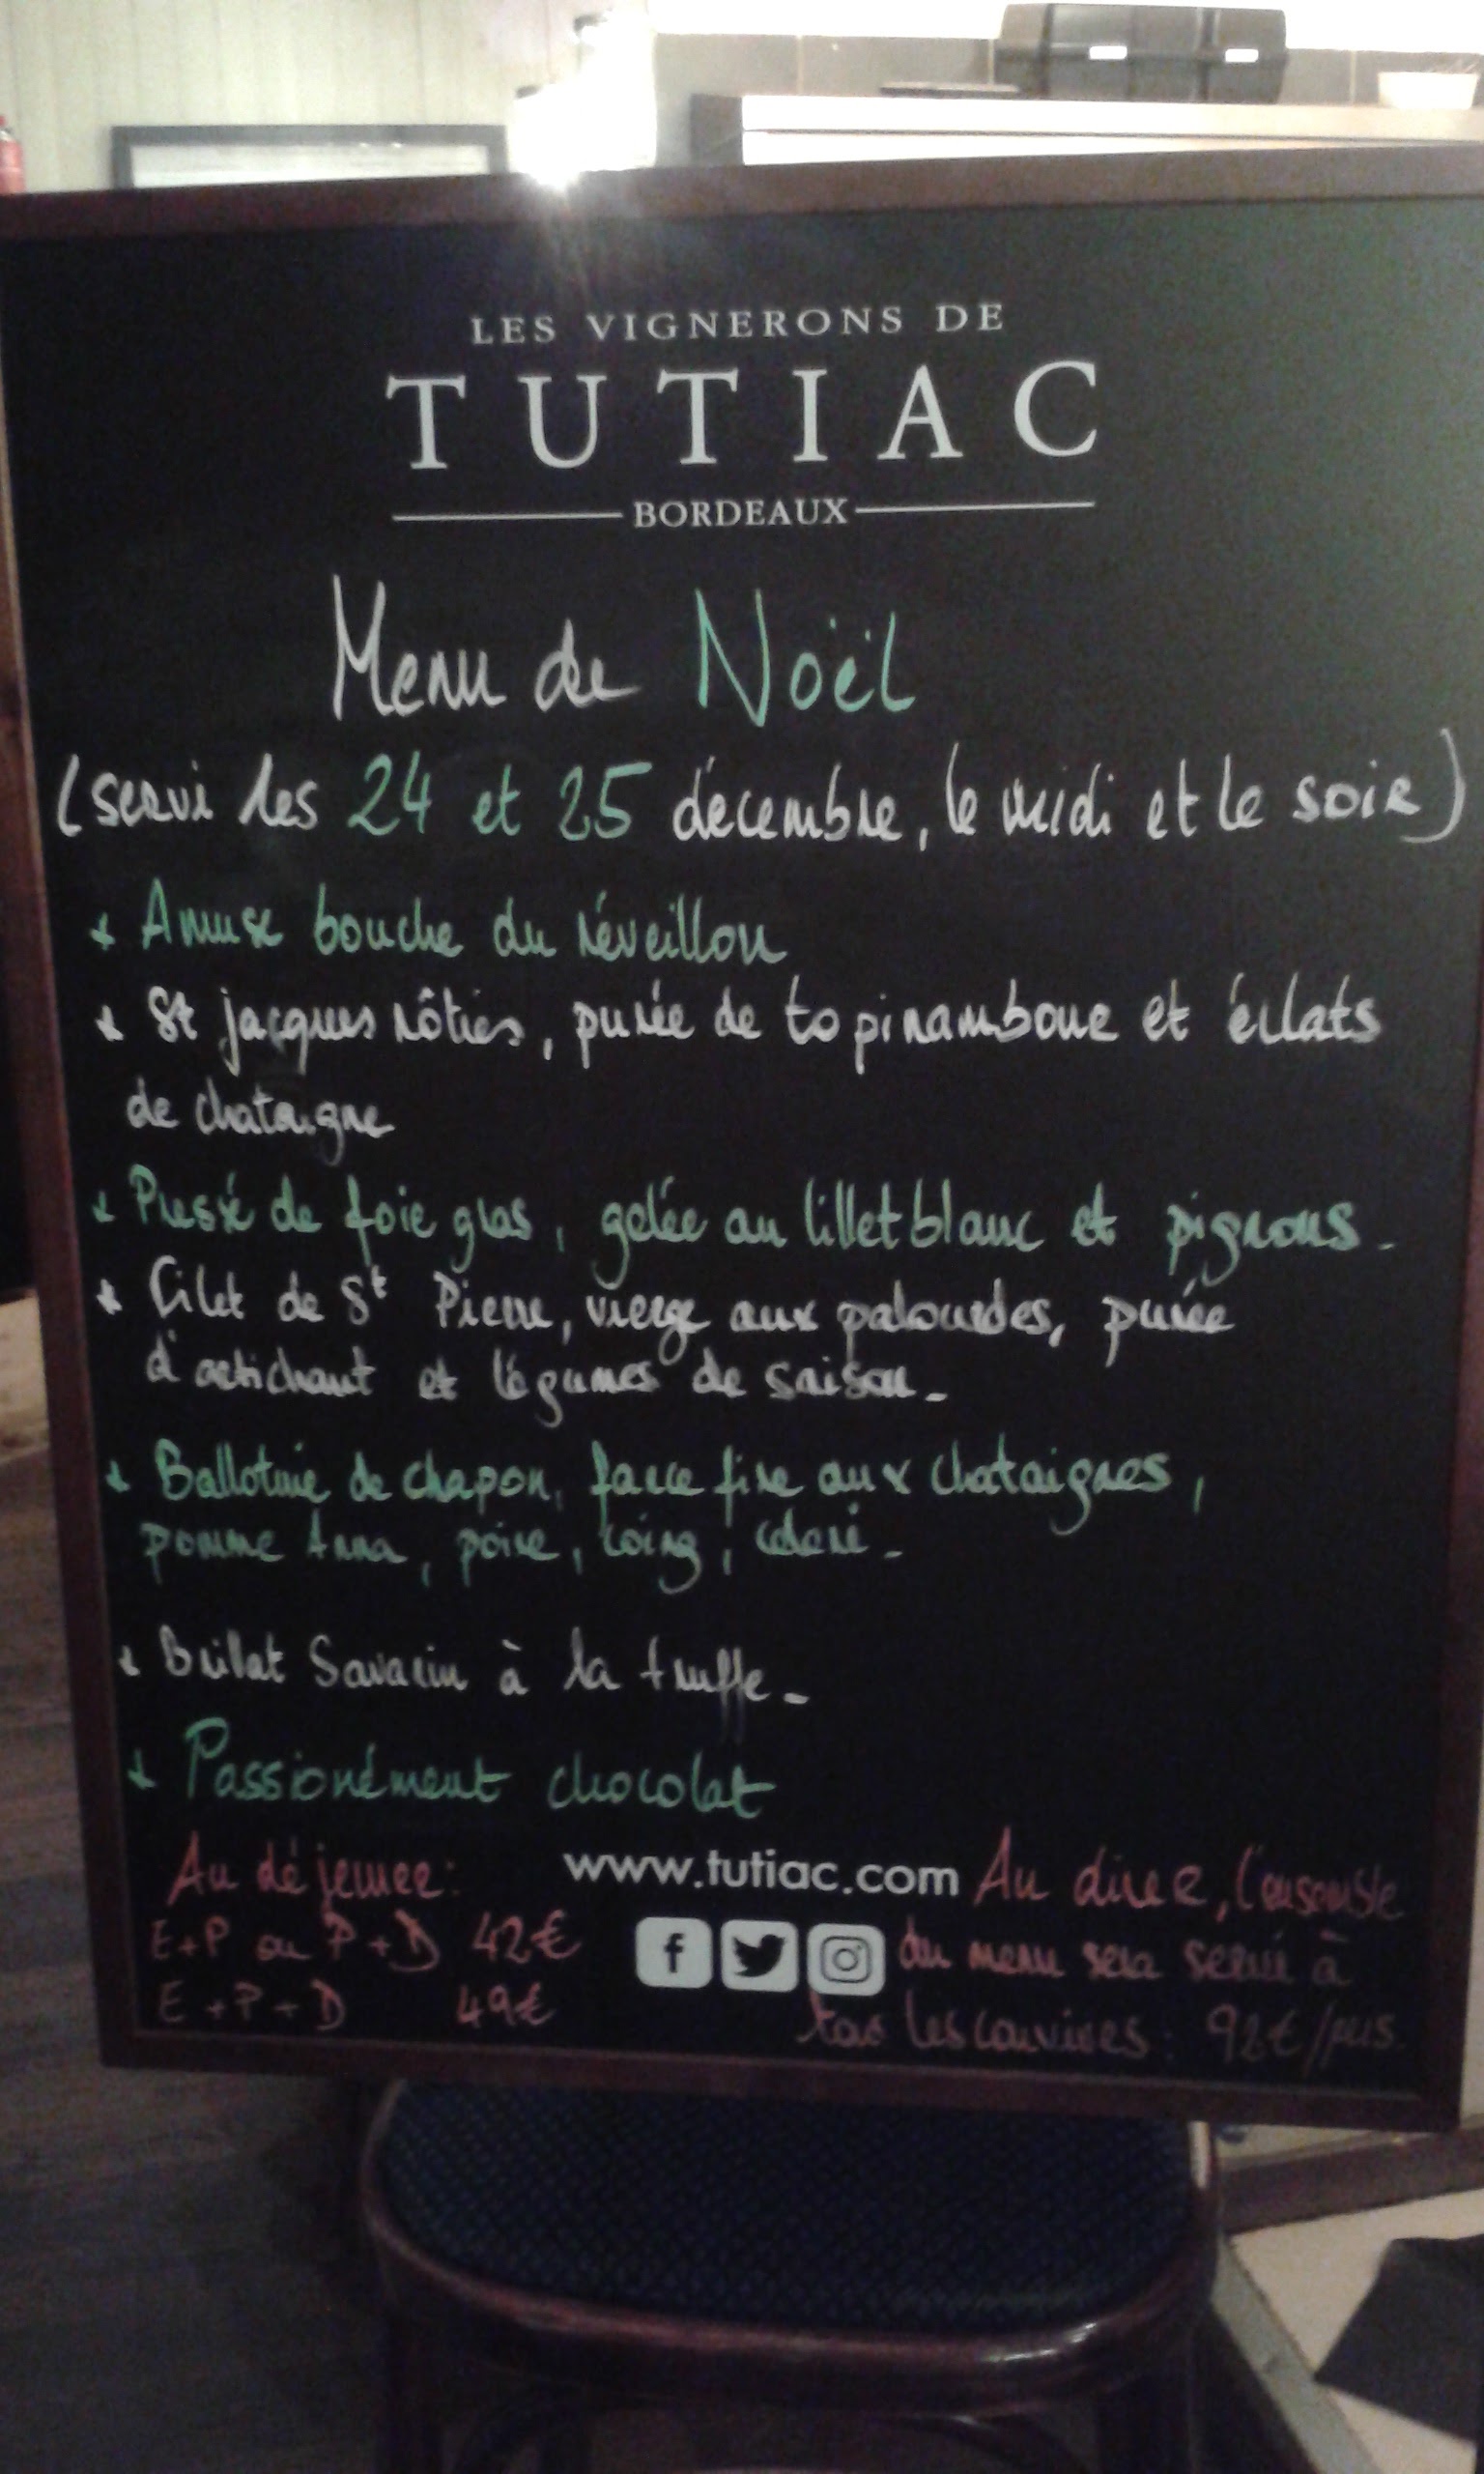 LES VIGNERONS DE
TUTIAC
BORDEAUX
Menu de Noël
(servi les 24 et 25 décembre, le midi et le soir)
* Amuse bouche du réveillon
* St jacques rôties, purée de topinambour et éclats
de chataigne
* Pressé de foie gras, gelée au lillet blanc et pignons.
* Filet de St Pierre, vierge aux palourdes, purée
d'artichaut et légumes de saison.
* Ballotine de chapon, farce fine aux chataignes,
pomme Anna, poire, coing, céleri.
* Brillat Savarin à la truffe.
* Passionément chocolat
www.tutiac.com
Au déjeuner:
E+P ou P+D 42€
E+P+D 49€
Au diner, l'ensemble
du menu sera servi à
tous les convives : 92€/pers.